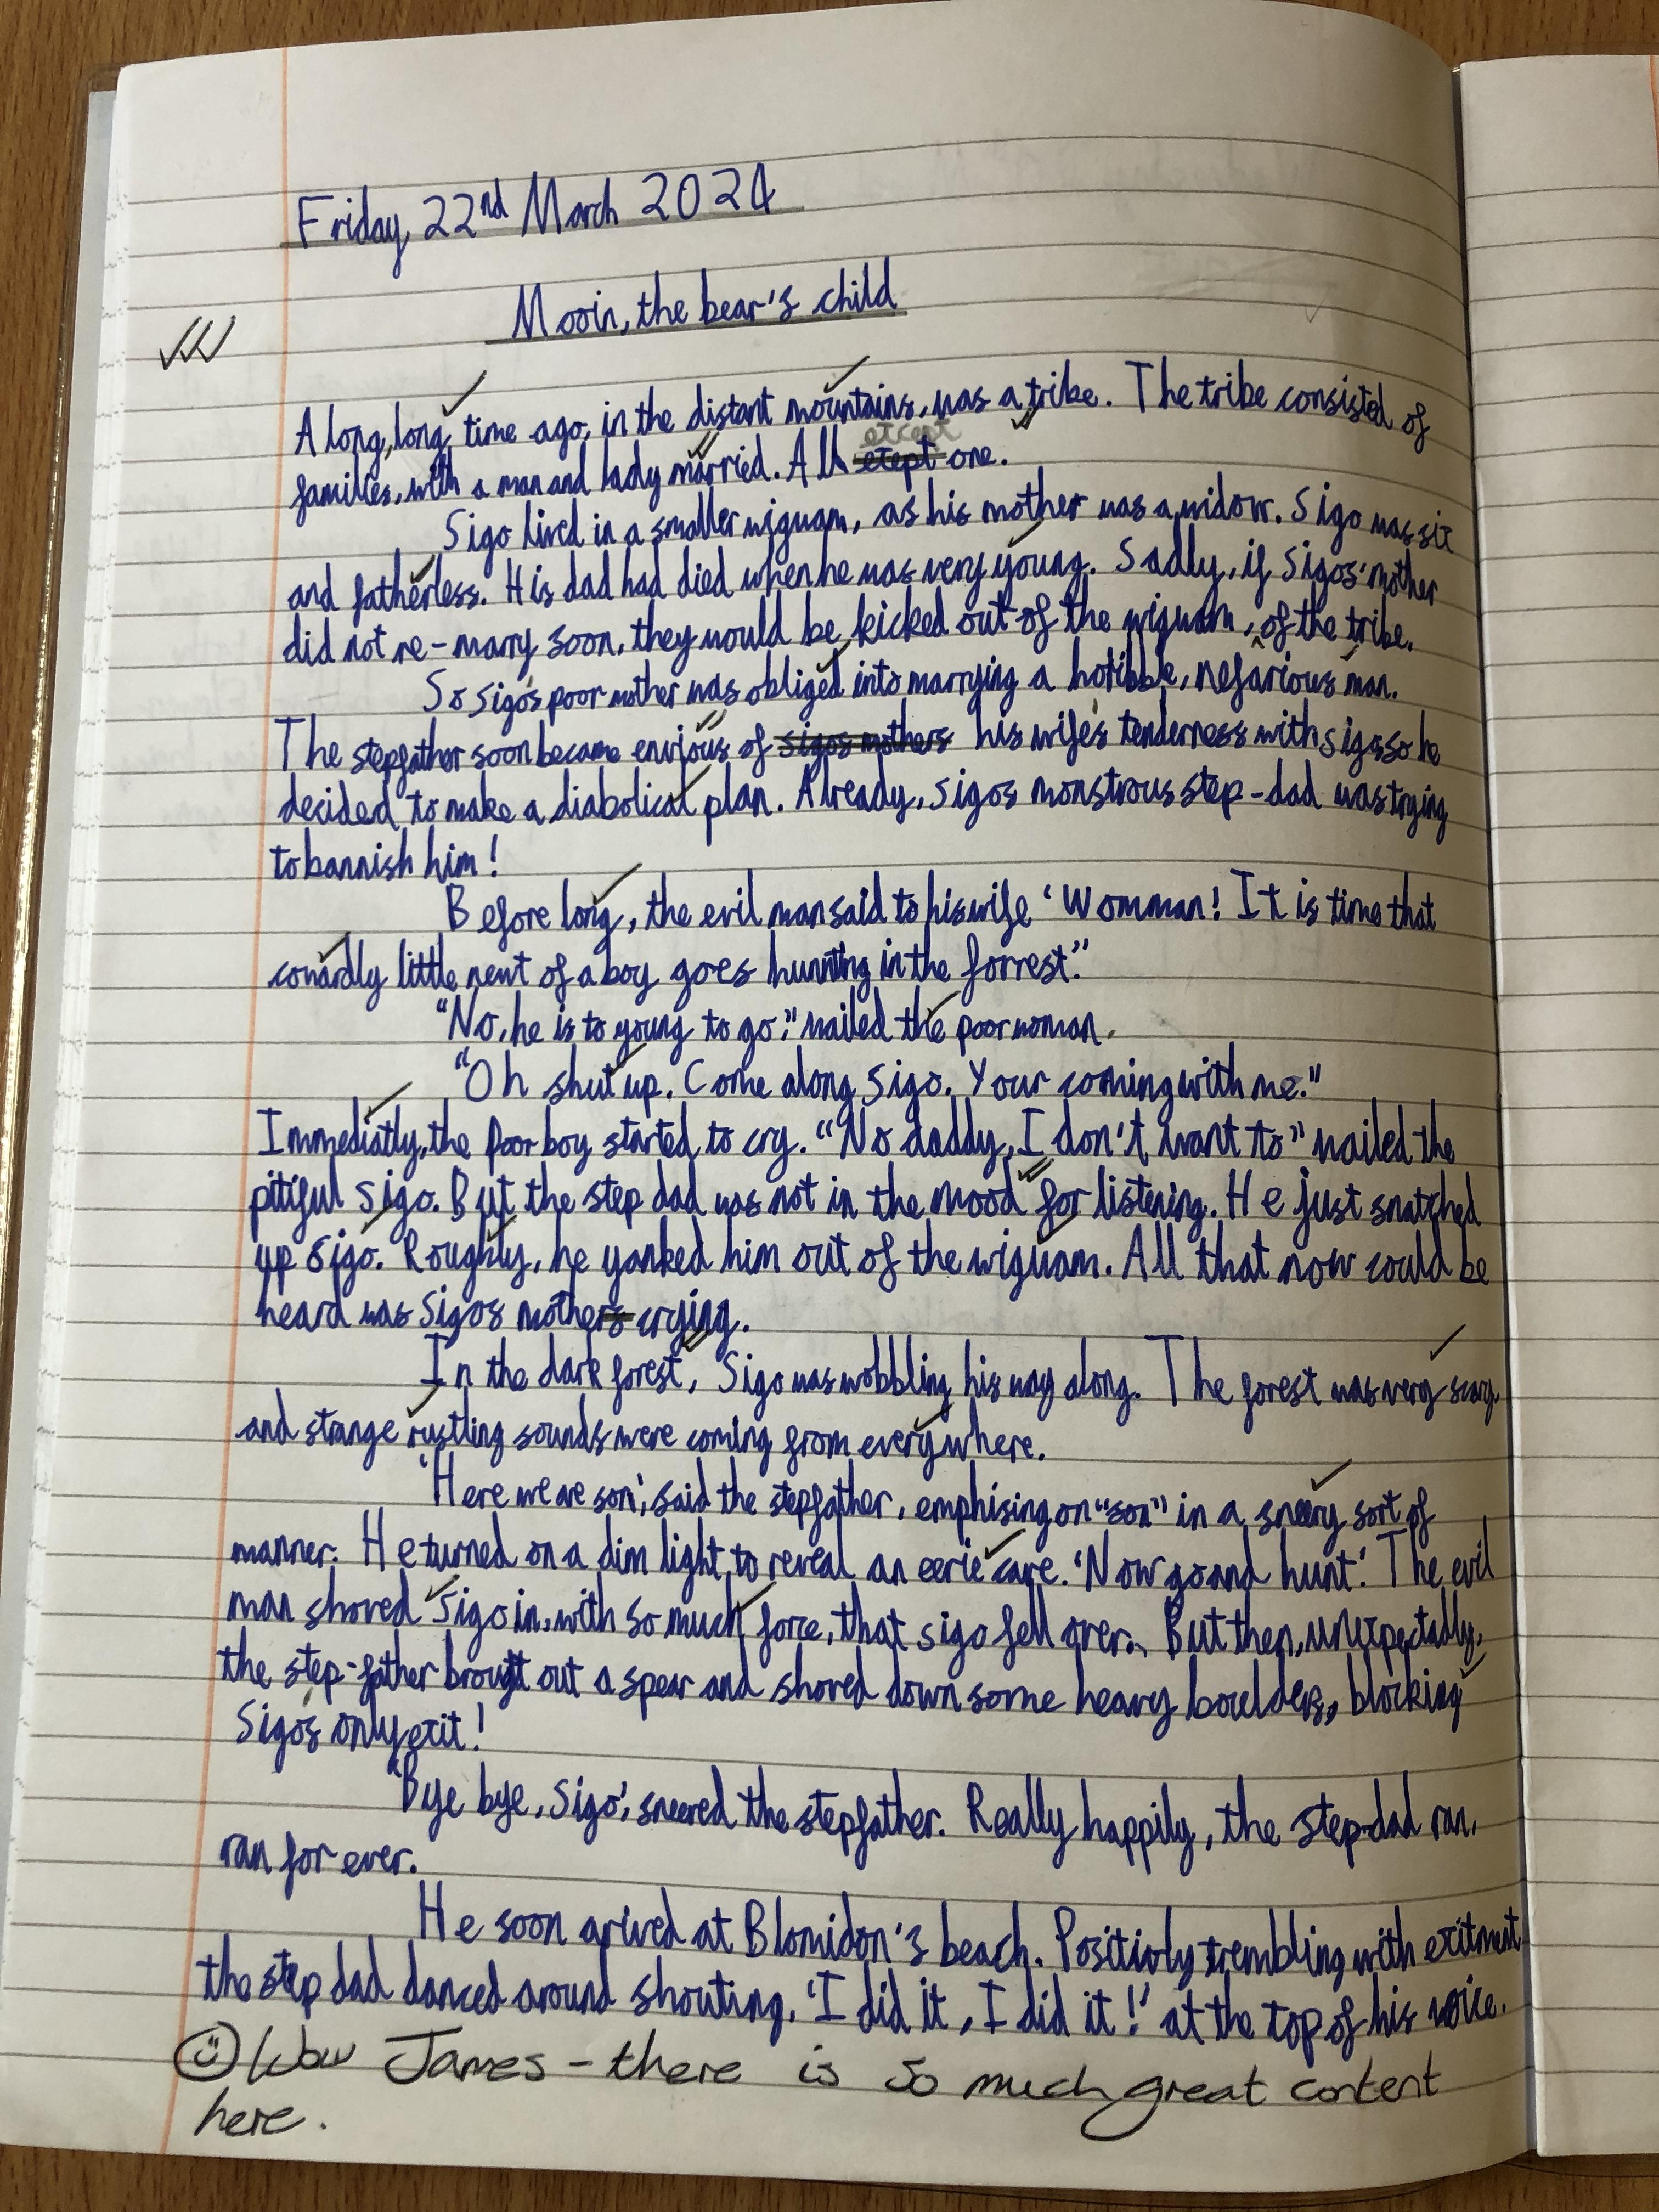 Friday, 22nd March 2024
Mooin, the bear's child
A long, long time ago, in the distant mountains, was a tribe. The tribe consisted of
except
families, with a man and lady married. All etept one.
Sigo lived in a smaller wiguam, as his mother was a widow. Sigo was six
and fatherless. His dad had died when he was very young. Sadly, if Sigos' mother
did not re-marry soon, they would be kicked out of the wiguam, of the tribe.
So Sigo's poor mother was obliged into marrying a horibble, nefarious man.
The stepfather soon became envious of sigos mothers his wife's tenderness with sigo so he
decided to make a diabolical plan. Already, sigos monstrous step-dad was trying
to bannish him!
Before long, the evil man said to his wife 'Womman! It is time that
cowardly little newt of a boy goes hunting in the forrest."
"No, he is to young to go," wailed the poor woman.
"Oh shut up. Come along Sigo. Your coming with me."
Immediatly, the poor boy started to cry. "No daddy, I don't want to" wailed the
pitiful sigo. But the step dad was not in the mood for listening. He just snatched
up sigo. Roughly, he yanked him out of the wiguam. All that now could be
heard was Sigos mothers crying.
In the dark forest, Sigo was wobbling his way along. The forest was very scary,
and strange rustling sounds were coming from everywhere.
'Here we are son', said the stepfather, emphising on "son" in a sneery sort of
manner. He turned on a dim light to reveal an eerie cave. 'Now go and hunt'. The evil
man shoved Sigo in, with so much force, that sigo fell over. But then, unexpectadly,
the step-father brought out a spear and shoved down some heavy boulders, blocking
Sigo's only exit!
'Bye bye, Sigo', sneered the stepfather. Really happily, the step-dad ran,
ran for ever.
He soon arived at Blomidon's beach. Positivly trembling with exitment
the step dad danced around shouting, 'I did it, I did it!' at the top of his voice.
Wow James - there is so much great content
here.